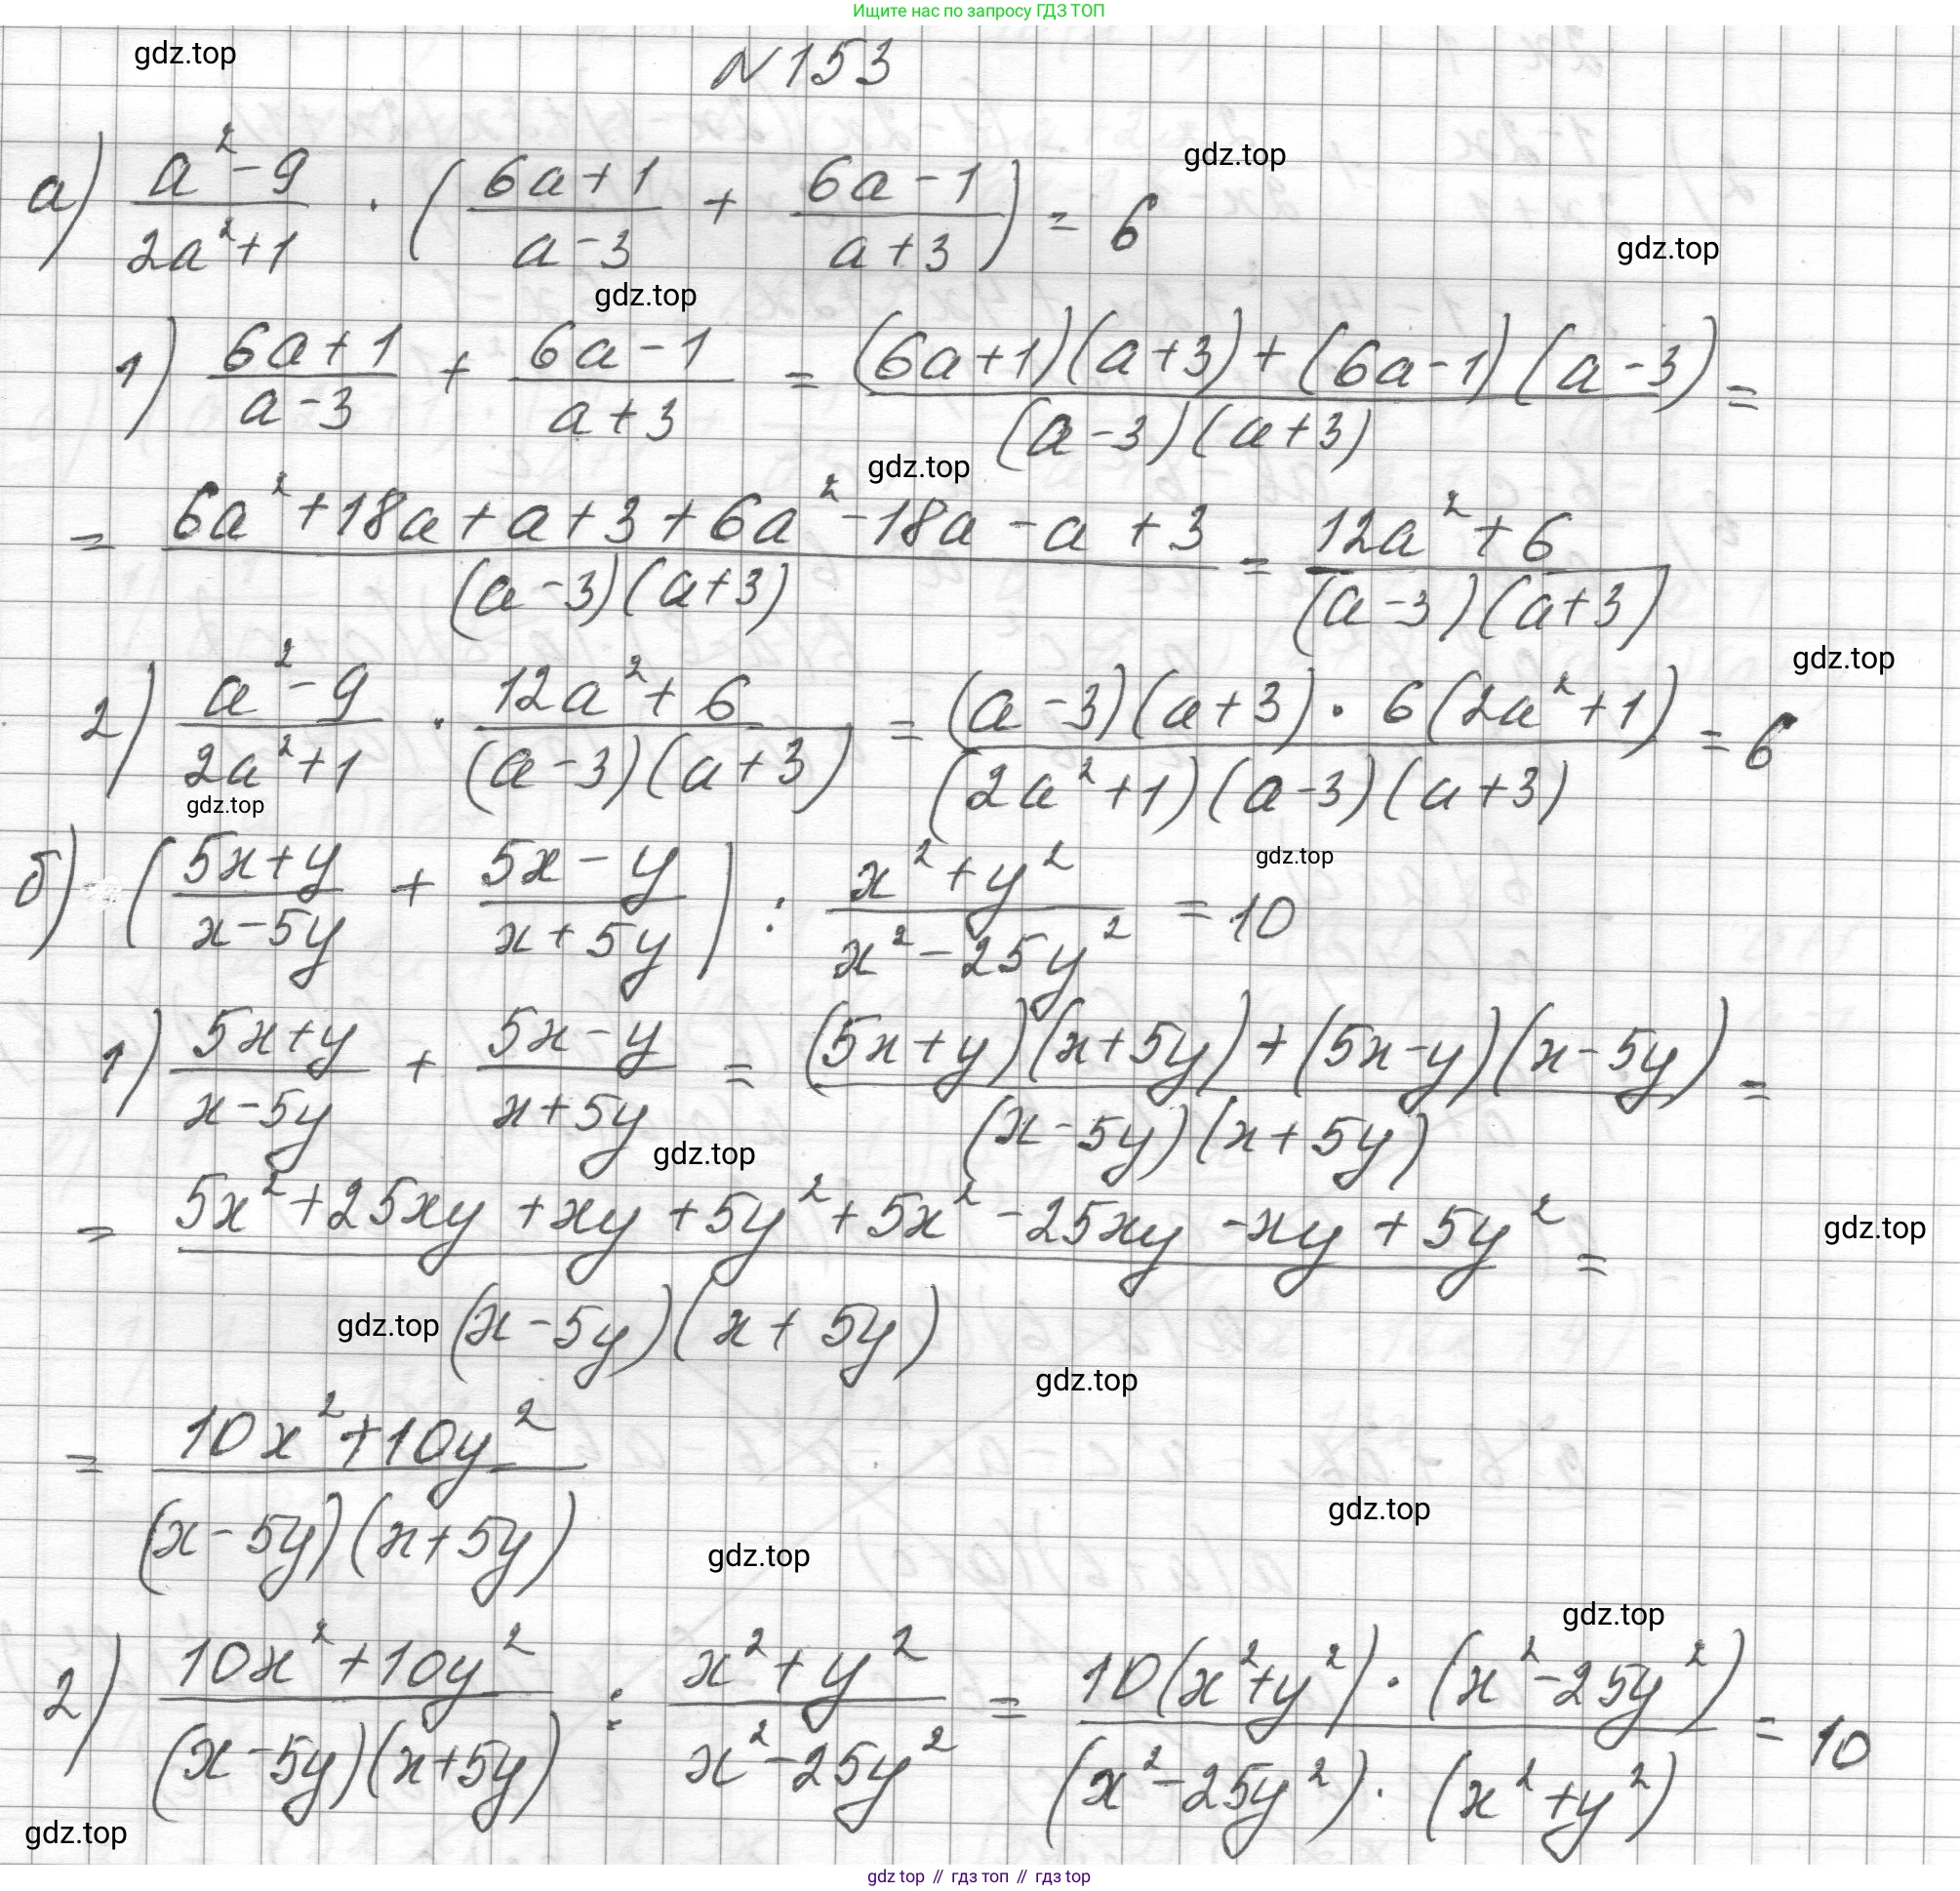 Ищите нас по запросу ГДЗ ТОП
gdz.top
N 153
gdz.top
а) (a²-9)/(2a²+1) · ((6a+1)/(a-3) + (6a-1)/(a+3)) = 6
gdz.top
gdz.top
1) (6a+1)/(a-3) + (6a-1)/(a+3) = ((6a+1)(a+3)+(6a-1)(a-3))/((a-3)(a+3)) =
gdz.top
= (6a²+18a+a+3+6a²-18a-a+3)/((a-3)(a+3)) = (12a²+6)/((a-3)(a+3))
gdz.top
2) (a²-9)/(2a²+1) · (12a²+6)/((a-3)(a+3)) = ((a-3)(a+3)·6(2a²+1))/((2a²+1)(a-3)(a+3)) = 6
gdz.top
gdz.top
б) ((5x+y)/(x-5y) + (5x-y)/(x+5y)) : (x²+y²)/(x²-25y²) = 10
1) (5x+y)/(x-5y) + (5x-y)/(x+5y) = ((5x+y)(x+5y)+(5x-y)(x-5y))/((x-5y)(x+5y)) =
gdz.top
= (5x²+25xy+xy+5y²+5x²-25xy-xy+5y²)/((x-5y)(x+5y)) =
gdz.top
gdz.top
gdz.top
= (10x²+10y²)/((x-5y)(x+5y))
gdz.top
gdz.top
gdz.top
2) (10x²+10y²)/((x-5y)(x+5y)) : (x²+y²)/(x²-25y²) = (10(x²+y²)·(x²-25y²))/((x²-25y²)·(x²+y²)) = 10
gdz.top
gdz top // гдз топ // гдз top